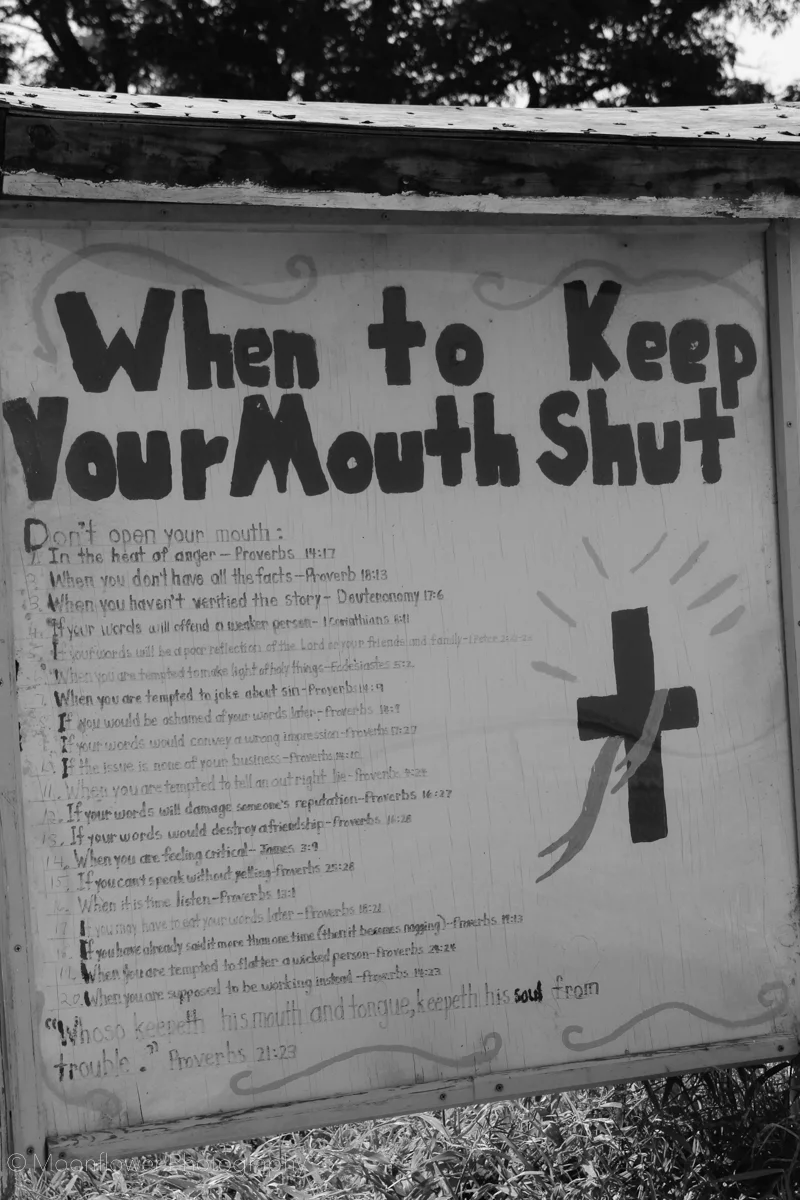 When to Keep
Your Mouth Shut
Don't open your mouth:
1. In the heat of anger - Proverbs 14:17
2. When you don't have all the facts - Proverb 18:13
3. When you haven't verified the story - Deuteronomy 17:6
4. If your words will offend a weaker person - 1 Corinthians 8:11
If your words will be a poor reflection of the Lord or your friends and family - 1 Peter
When you are tempted to make light of holy things - Ecclesiastes 5:2
When you are tempted to joke about sin - Proverbs 14:9
If you would be ashamed of your words later - Proverbs 18:7
If your words would convey a wrong impression - Proverbs 17:27
10. If the issue is none of your business - Proverbs 14:10
11. When you are tempted to tell an out right lie - Proverbs
12. If your words will damage someone's reputation - Proverbs 16:27
13. If your words would destroy a friendship - Proverbs 16:28
14. When you are feeling critical - James 3:9
15. If you can't speak without yelling - Proverbs 25:28
When it is time listen - Proverbs 13:1
17. If you may have to eat your words later - Proverbs 18:21
18. If you have already said it more than one time (then it becomes nagging) - Proverbs 19:13
19. When you are tempted to flatter a wicked person - Proverbs 24:24
20. When you are supposed to be working instead - Proverbs 14:23
"Whoso keepeth his mouth and tongue, keepeth his soul from
trouble." Proverbs 21:23
© Moonflower Photography